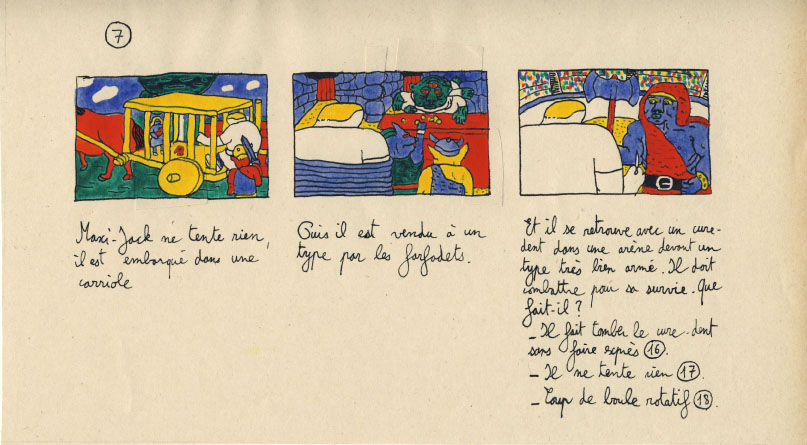 7
Maxi-Jack ne tente rien,
il est embarqué dans une
carriole
Puis il est vendu à un
type par les farfadets.
Et il se retrouve avec un cure-
dent dans une arène devant un
type très bien armé. Il doit
combattre pour sa survie. Que
fait-il ?
- Il fait tomber le cure-dent
sans faire exprès 16.
- Il ne tente rien 17.
- Coup de boule rotatif 18.